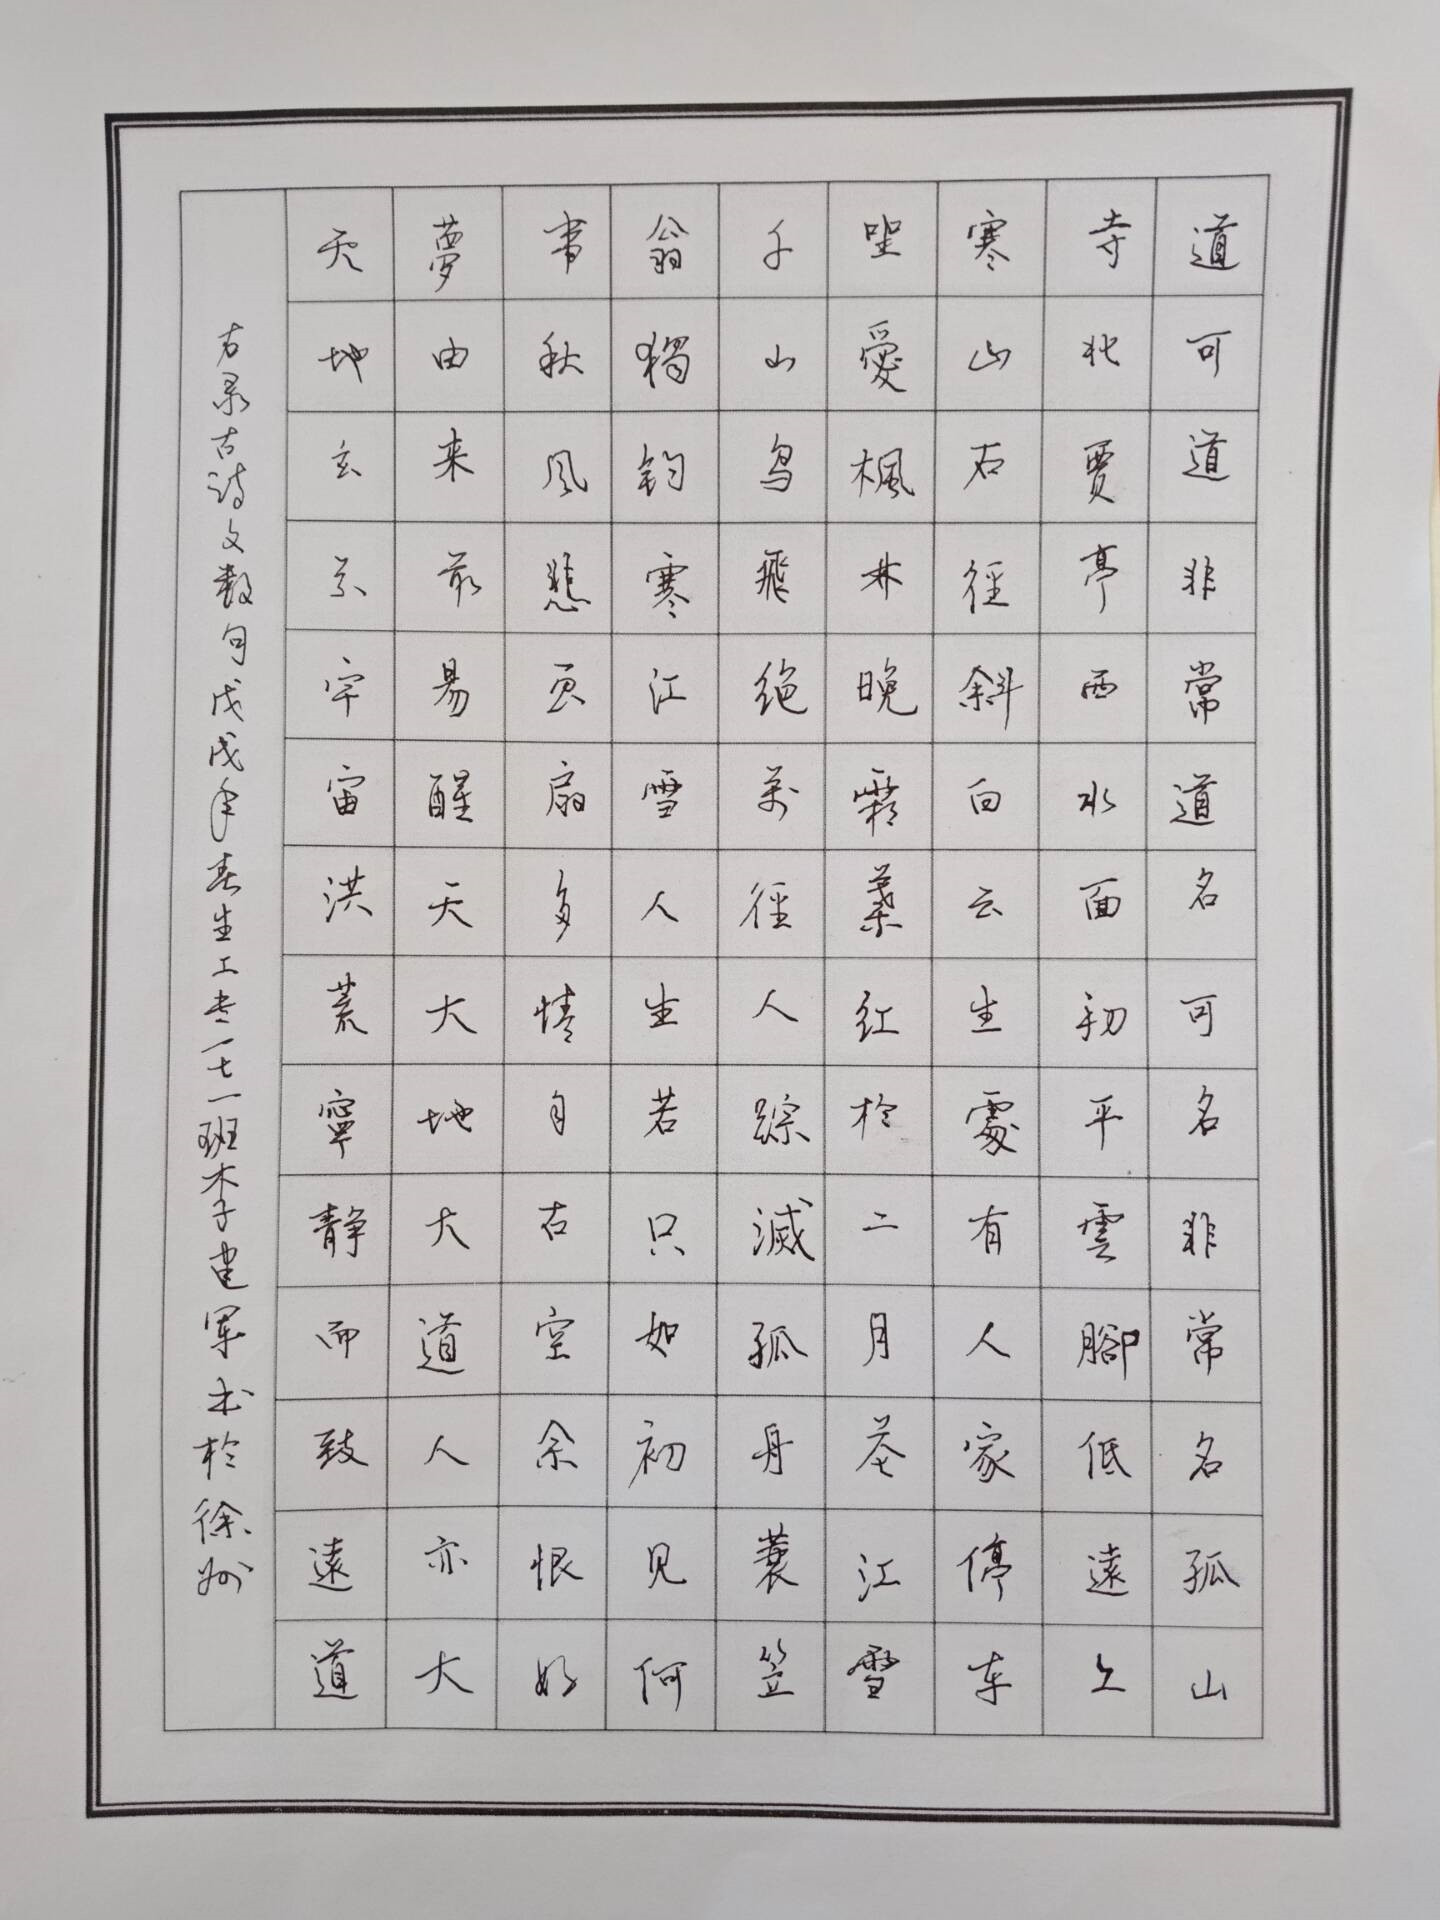 道可道非常道名可名非常名孤山
寺北賈亭西水面初平雲腳低遠上
寒山石徑斜白云生處有人家停车
坐愛楓林晚霜葉红於二月花江雪
千山鸟飛绝萬徑人踪滅孤舟蓑笠
翁獨钓寒江雪人生若只如初见何
事秋风悲画扇多情自古空余恨好
夢由来最易醒天大地大道人亦大
天地玄黄宇宙洪荒寧静而致遠道
右录古诗文数句戊戌年春生工专一七一班李建军书於徐州